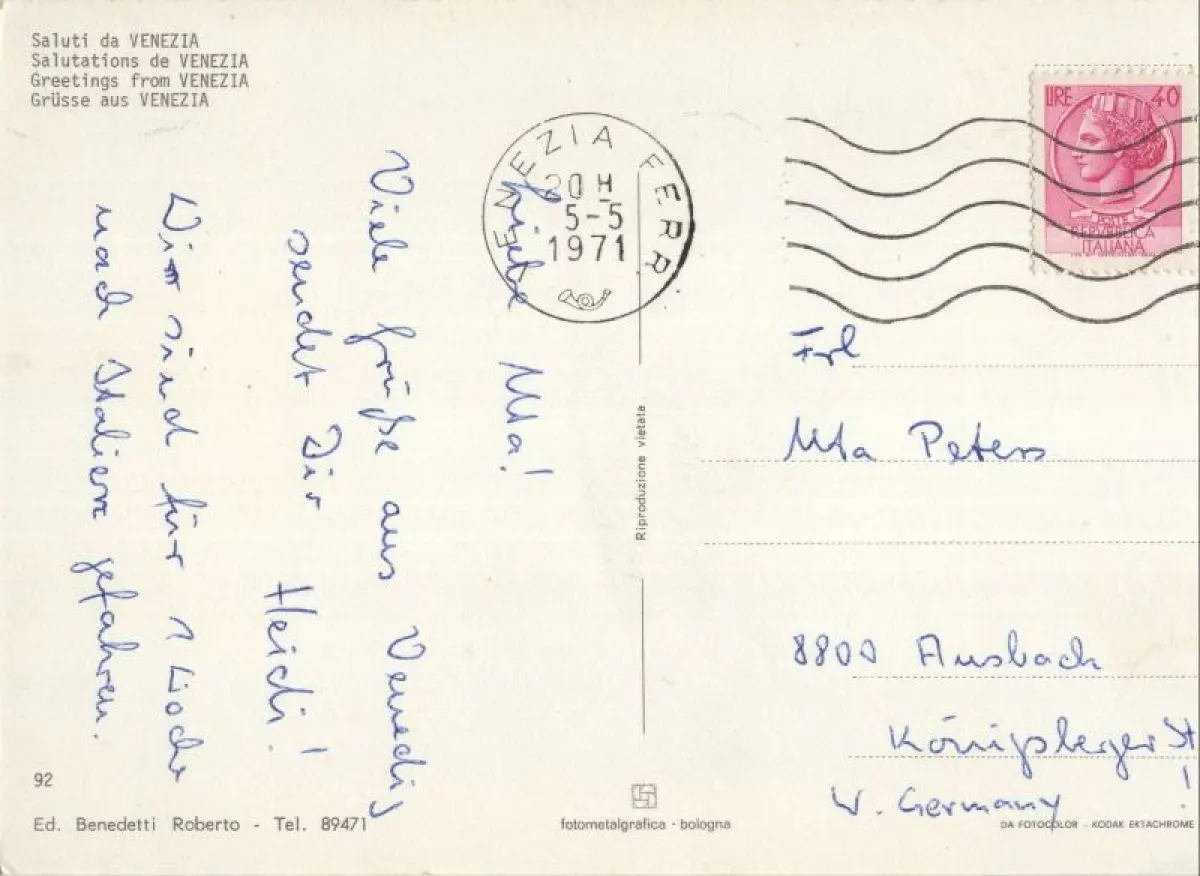 Saluti da VENEZIA
Salutations de VENEZIA
Greetings from VENEZIA
Grüsse aus VENEZIA
VENEZIA FERR
20 H
5-5
1971
LIRE 40
POSTE
REPVBBLICA
ITALIANA
Liebe Uta!
Viele Grüße aus Venedig
sendet Dir Heidi!
Wir sind für 1 Woche
nach Italien gefahren.
Riproduzione vietata
Frl
Uta Peters
8800 Ansbach
Königsberger St
!
W. Germany
92
Ed. Benedetti Roberto - Tel. 89471
fotometalgrafica - bologna
DA FOTOCOLOR - KODAK EKTACHROME